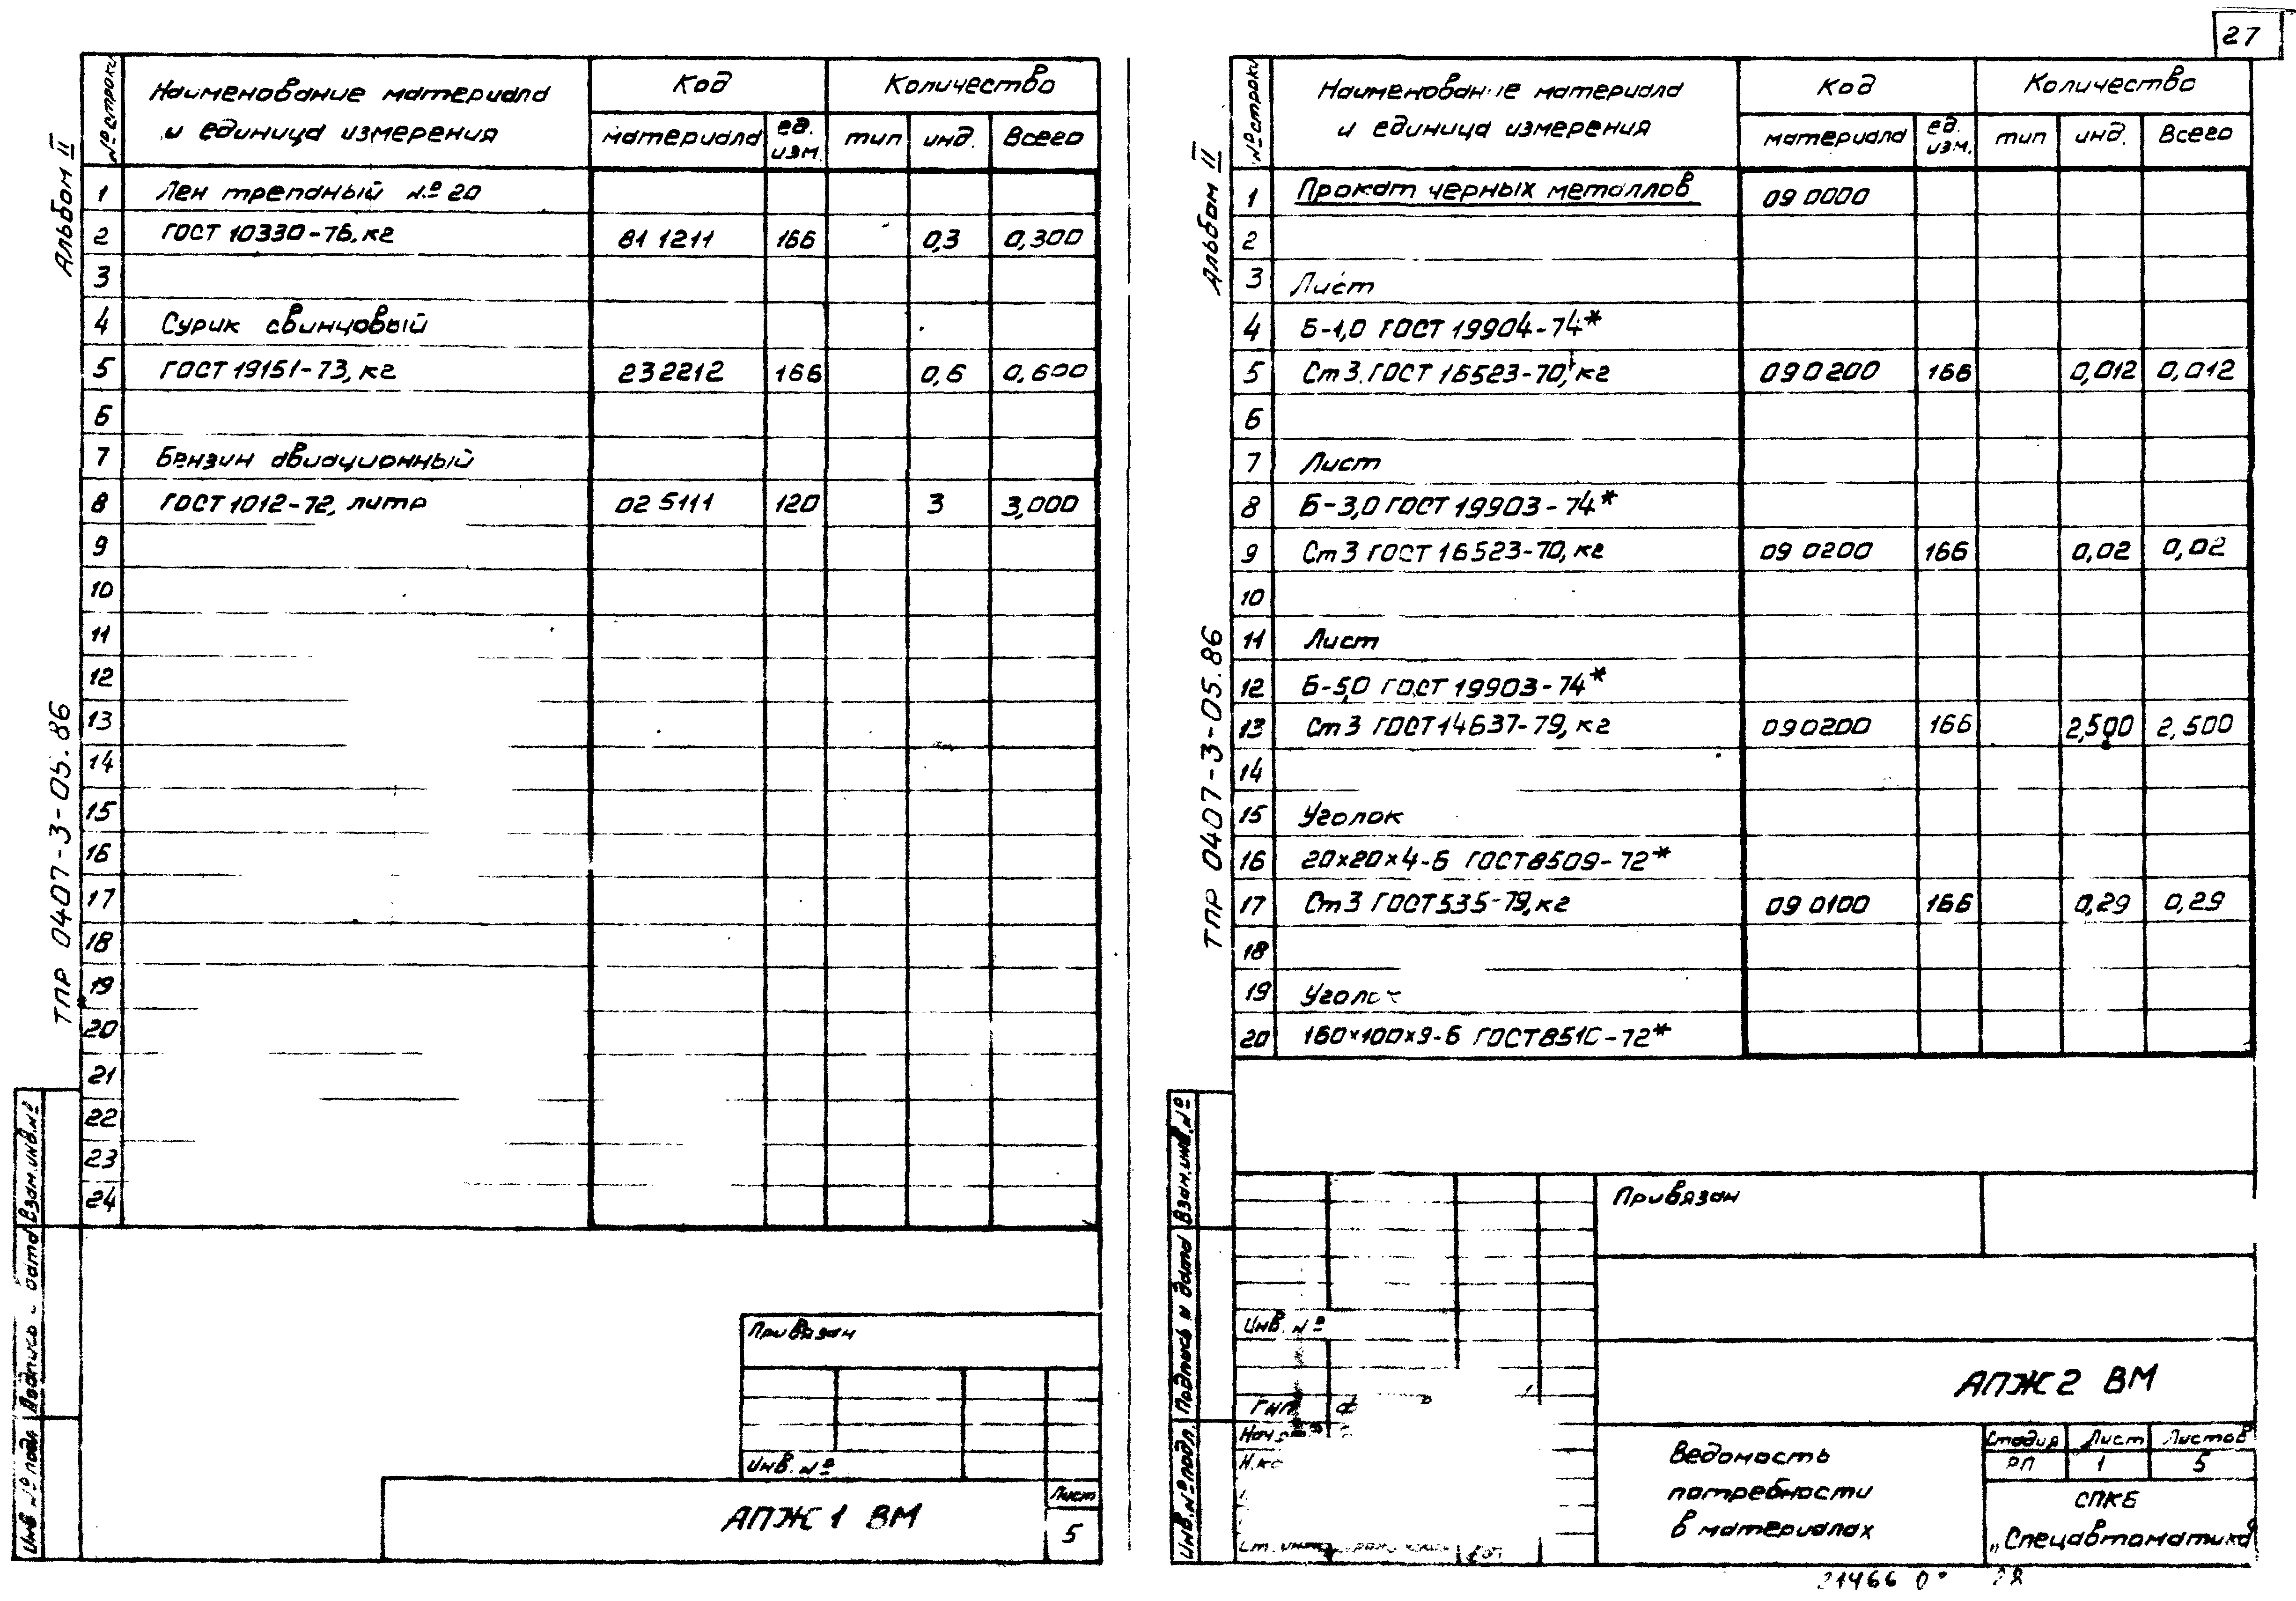 27
Альбом II
ТПР 0407-3-05.86
№ строки
Наименование материала и единица измерения
Код
Количество
материала
ед. изм.
тип
инд.
Всего
1 Лен трепаный №20
2 ГОСТ 10330-76, кг 81 1211 166 0,3 0,300
3
4 Сурик свинцовый
5 ГОСТ 19151-73, кг 232212 166 0,6 0,600
6
7 Бензин авиационный
8 ГОСТ 1012-72, литр 02 5111 120 3 3,000
9
10
11
12
13
14
15
16
17
18
19
20
21
22
23
24
Взам.инв.№
Подпись дата
Инв № подл.
Привязан
Инв. №
АПЖ 1 ВМ
Лист
5
Альбом II
ТПР 0407-3-05.86
№ строки
Наименование материала и единица измерения
Код
Количество
материала
ед. изм.
тип
инд.
Всего
1 Прокат черных металлов 09 0000
2
3 Лист
4 Б-1,0 ГОСТ 19904-74*
5 Ст 3 ГОСТ 16523-70, кг 090200 166 0,012 0,012
6
7 Лист
8 Б-3,0 ГОСТ 19903-74*
9 Ст 3 ГОСТ 16523-70, кг 09 0200 166 0,02 0,02
10
11 Лист
12 Б-5,0 ГОСТ 19903-74*
13 Ст 3 ГОСТ 14637-79, кг 090200 166 2,500 2,500
14
15 Уголок
16 20×20×4-Б ГОСТ 8509-72*
17 Ст 3 ГОСТ 535-79, кг 09 0100 166 0,29 0,29
18
19 Уголок
20 160×100×9-Б ГОСТ 8510-72*
Взам.инв.№
Подпись и дата
Инв.№ подл.
Привязан
Инв. №
ГИП
АПЖ 2 ВМ
Ведомость
потребности
в материалах
Стадия Лист Листов
РП 1 5
СПКБ
„Спецавтоматика"
21466
28